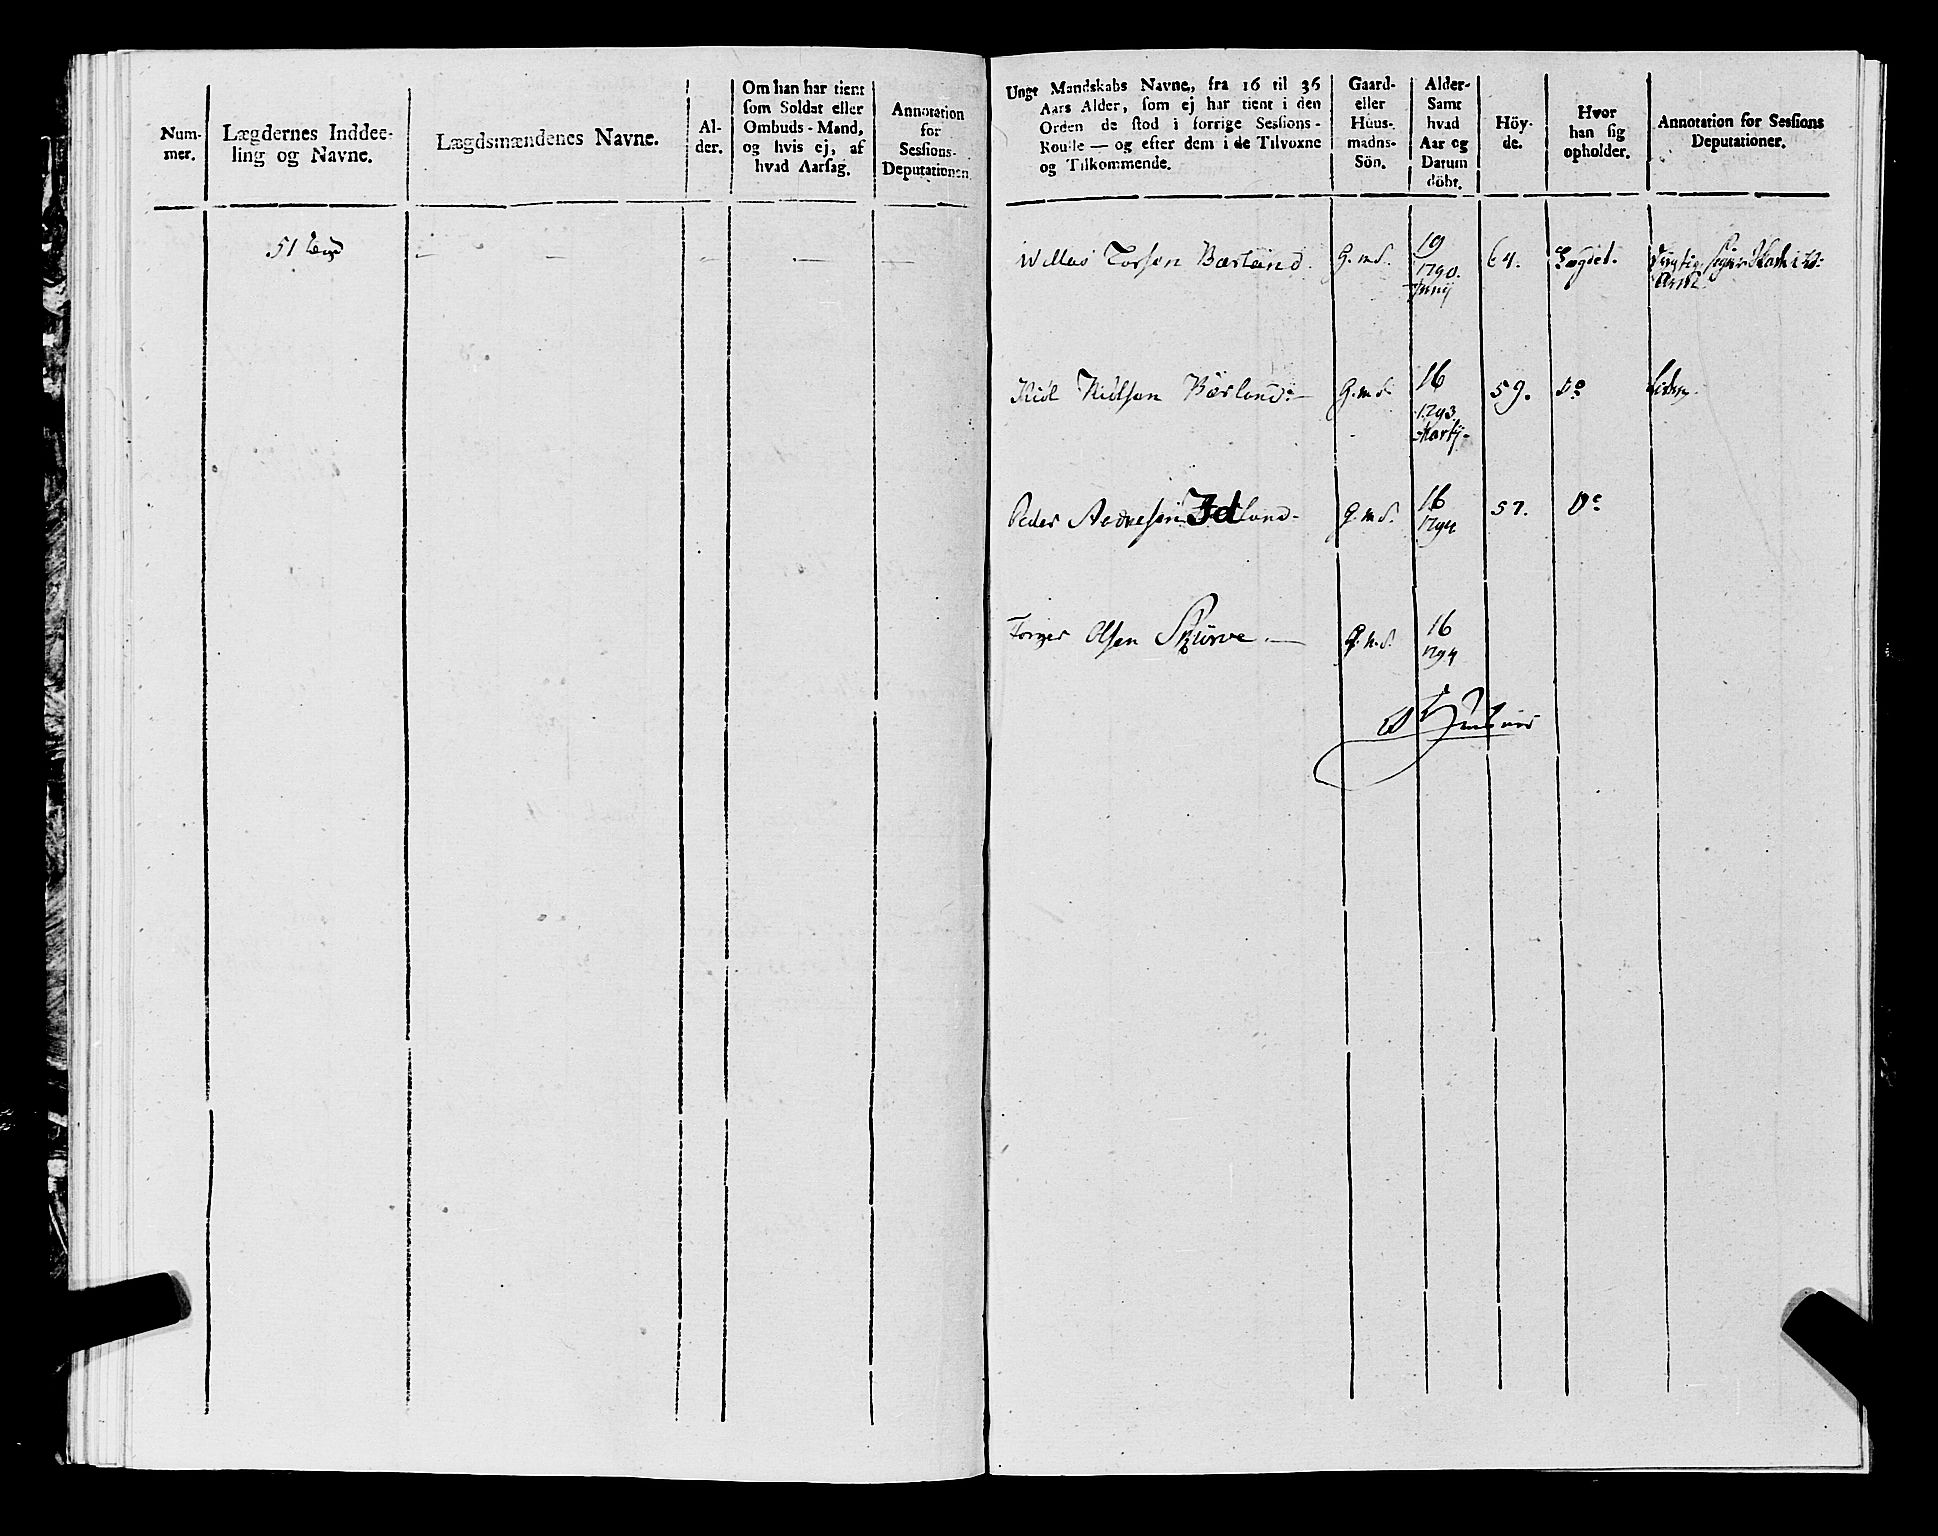 Num-
mer.
Lægdernes Inddee-
ling og Navne.
Lægdsmændenes Navne.
Al-
der.
Om han har tient
som Soldat eller
Ombuds-Mand,
og hvis ej, af
hvad Aarsag.
Annotation
for
Sessions-
Deputationen
Ungt Mandskabs Navne, fra 16 til 36
Aars Alder, som ej har tient i den
Orden de stod i forrige Sessions-
Roulle — og efter dem i de Tilvoxne
og Tilkommende.
Gaard-
eller
Huus-
madns-
Sön.
Alder-
Samt
hvad
Aar og
Datum
döbt.
Höy-
de.
Hvor
han sig
opholder.
Annotation for Sessions
Deputationer.
51
Willas Torsen Bærland. G.m.S. 19 64. Lægdet.
1790.
Junij
Kiöl Kiölsen Bærland. G.m.S. 16 59. Do liden.
1793.
Martij.
Peder Andresen Idland. G.m.S. 16 57. Do
1794
Torger Olsen Skurve. G.m.S. 16
1794